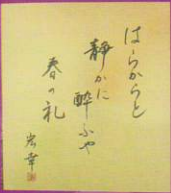 はらからと
静かに
酔ふや
春の礼
宏幸